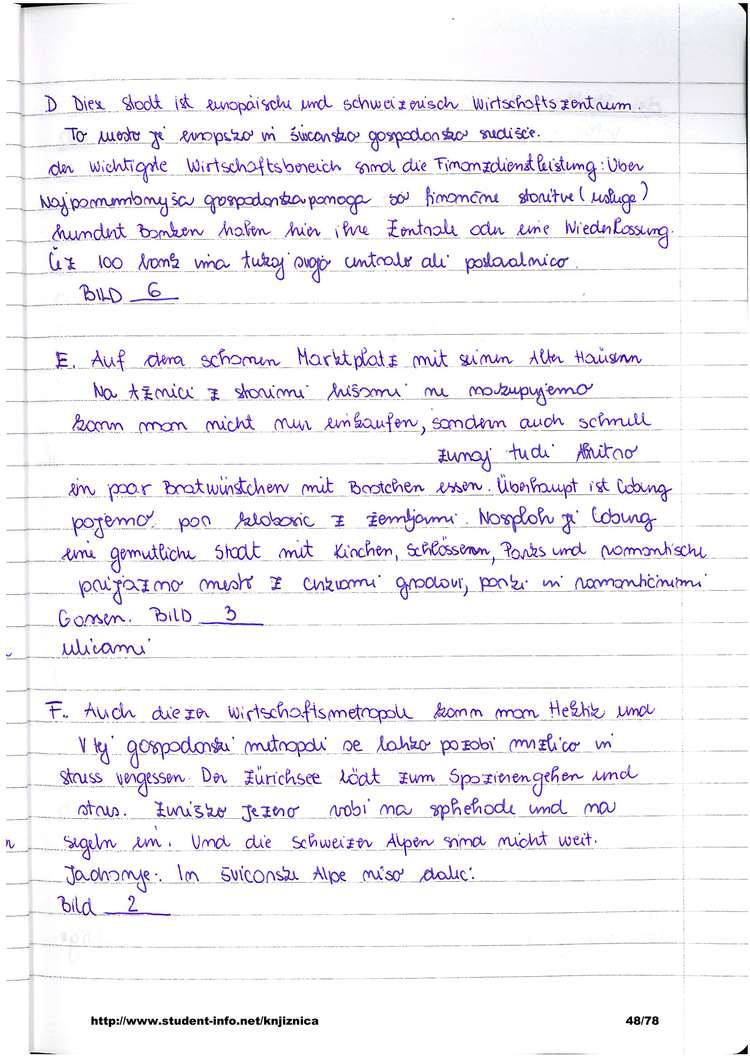 D Diex Stadt ist europäische und schweizerisch Wirtschaftszentrum.
To mesto je evropsko in švicarsko gospodarsko središče.
der wichtigste Wirtschaftsbereich sind die Finanzdienstleistung: Uber
Najpomembnejša gospodarska panoga so finančne storitve (usluge)
hundert Banken haben hier ihre Zentrale oder eine Niederlassung.
Čez 100 bank ima tukaj svojo centralo ali poslovalnico.
BILD 6
E. Auf dem schonen Marktplatz mit seinen Alten Haüsern
Na tržnici z starimi hišami ne nakupujemo
kann man nicht nur einkaufen, sondern auch schnell
zunaj tudi hitro
ein paar Bratwürstchen mit Brotchen essen. Überhaupt ist Coburg
pojemo par klobasic z žemljami. Nasploh je Coburg
eine gemutliche Stadt mit Kirchen, Schlössern, Parks und romantische
prijazno mesto z cerkvami gradovi, parki in romantičnimi
Gassen. BILD 3
ulicami
F. Auch diezer Wirtschaftsmetropole kann man Hektik und
V tej gospodarski metropoli se lahko pozabi naglico in
Stress vergessen. Der Zürichsee lädt zum Spazierengehen und
stres. Zuriško jezero vabi na sphehode und na
segeln ein. Und die Schweizer Alpen sind nicht weit.
Jadranje. In švicarske Alpe niso daleč.
Bild 2
http://www.student-info.net/knjiznica
48/78